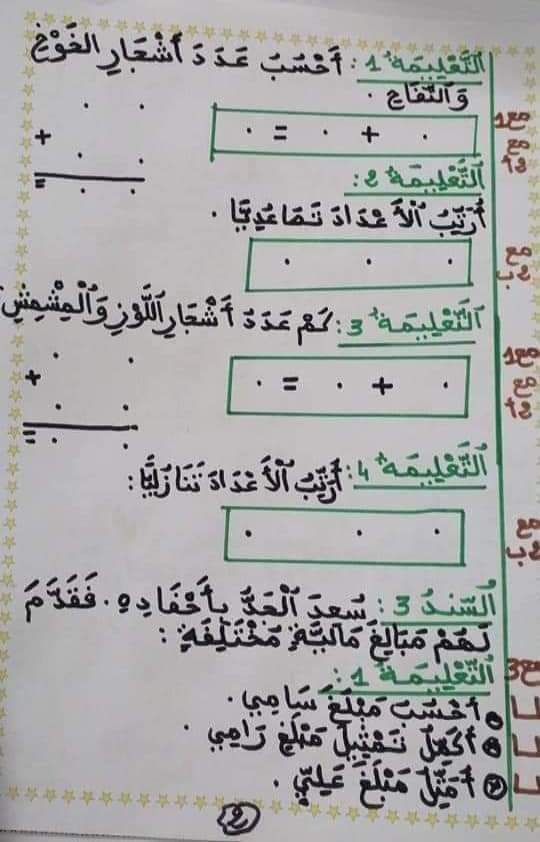 التَّعْلِيمَة 1 : أَحْسَبُ عَدَدَ أَشْعَارِ الخَوْخِ
وَالتُّفَّاحِ .
مع1
. = . + .
+
=
مع
2أ
التَّعْلِيمَة 2 :
أُرَتِّبُ الْأَعْدَادَ تَصَاعُدِيًّا .
مع
2ب
. . .
التَّعْلِيمَة 3 : كَمْ عَدَدُ أَشْعَارِ اللَّوْزِ وَالْمِشْمِشِ
مع1
. = . + .
+
=
مع
2أ
التَّعْلِيمَة 4 : أُرَتِّبُ الْأَعْدَادَ تَنَازُلِيًّا :
. . .
مع
2ب
السَّنَدُ 3 : سُعِدَ الْجَدُّ بِأَحْفَادِهِ . فَقَدَّمَ
لَهُمْ مَبَالِغَ مَالِيَّةٍ مُخْتَلِفَةٍ :
مع3
التَّعْلِيمَة 1 :
أَحْسُبُ مَبْلَغَ سَامِي .
أُكْمِلُ تَمْثِيلَ مَبْلَغِ رَامِي .
أُمَثِّلُ مَبْلَغَ عَلِيٍّ .
2